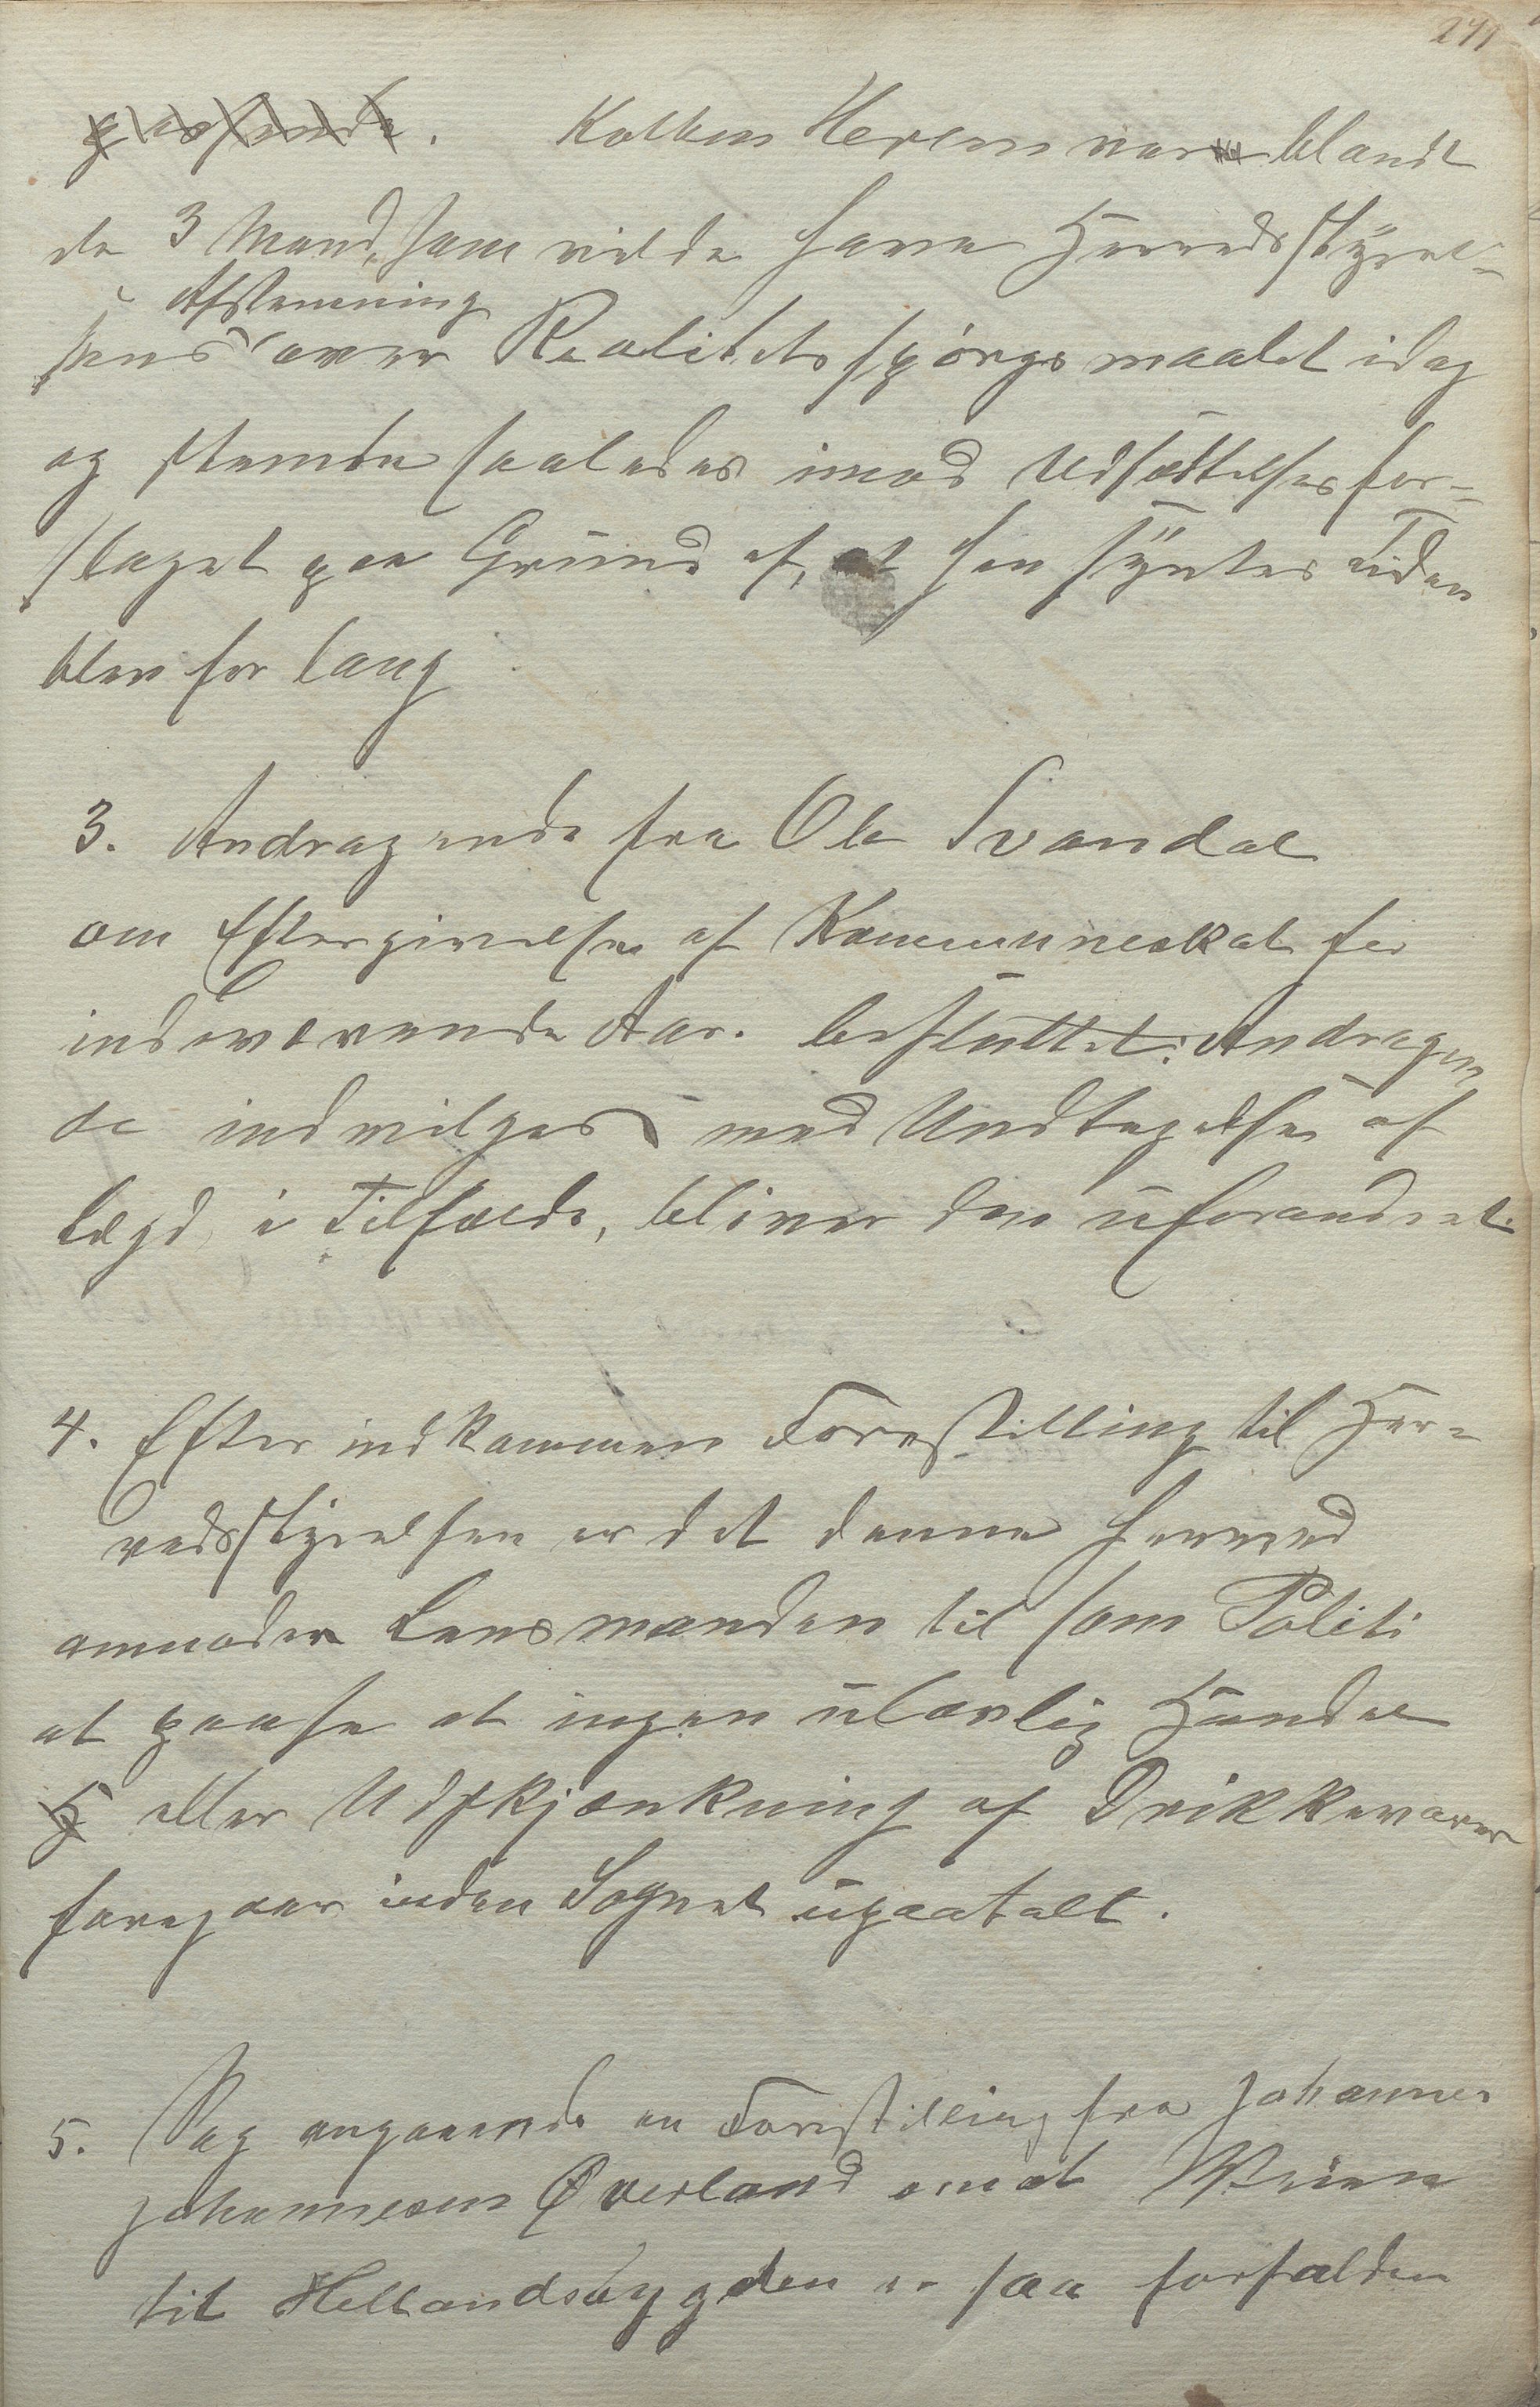 241
Kolben Herem var blandt
de 3 Mand, som vilde have Herredsstyrel-
Afstemning
sens over Realitetsspörgsmaalet idag
og stemte saaledes imod Udsættelsesfor-
slaget paa Grund af, at han syntes Tiden
blev for lang
3. Andragende fra Ole Svandal
om Eftergivelse af Kommuneskat for
indeværende Aar. besluttet: Andragen
de indvilges med Undtagelse af
Lægd, i Tilfælde, bliver den uforandret.
4. Efter indkommen Forestilling til Her-
redsstyrelsen er det denne herved
anmoder Lensmanden til som Politi
at paase at ingen ulovlig Handel
H eller Udskjænkning af Drikkevarer
foregaar inden Sognet upaatalt.
5. Sag angaaende en Forestilling fra Johannes
Johannesen Øverland om at Veien
til Hellandsbygden er saa forfalden